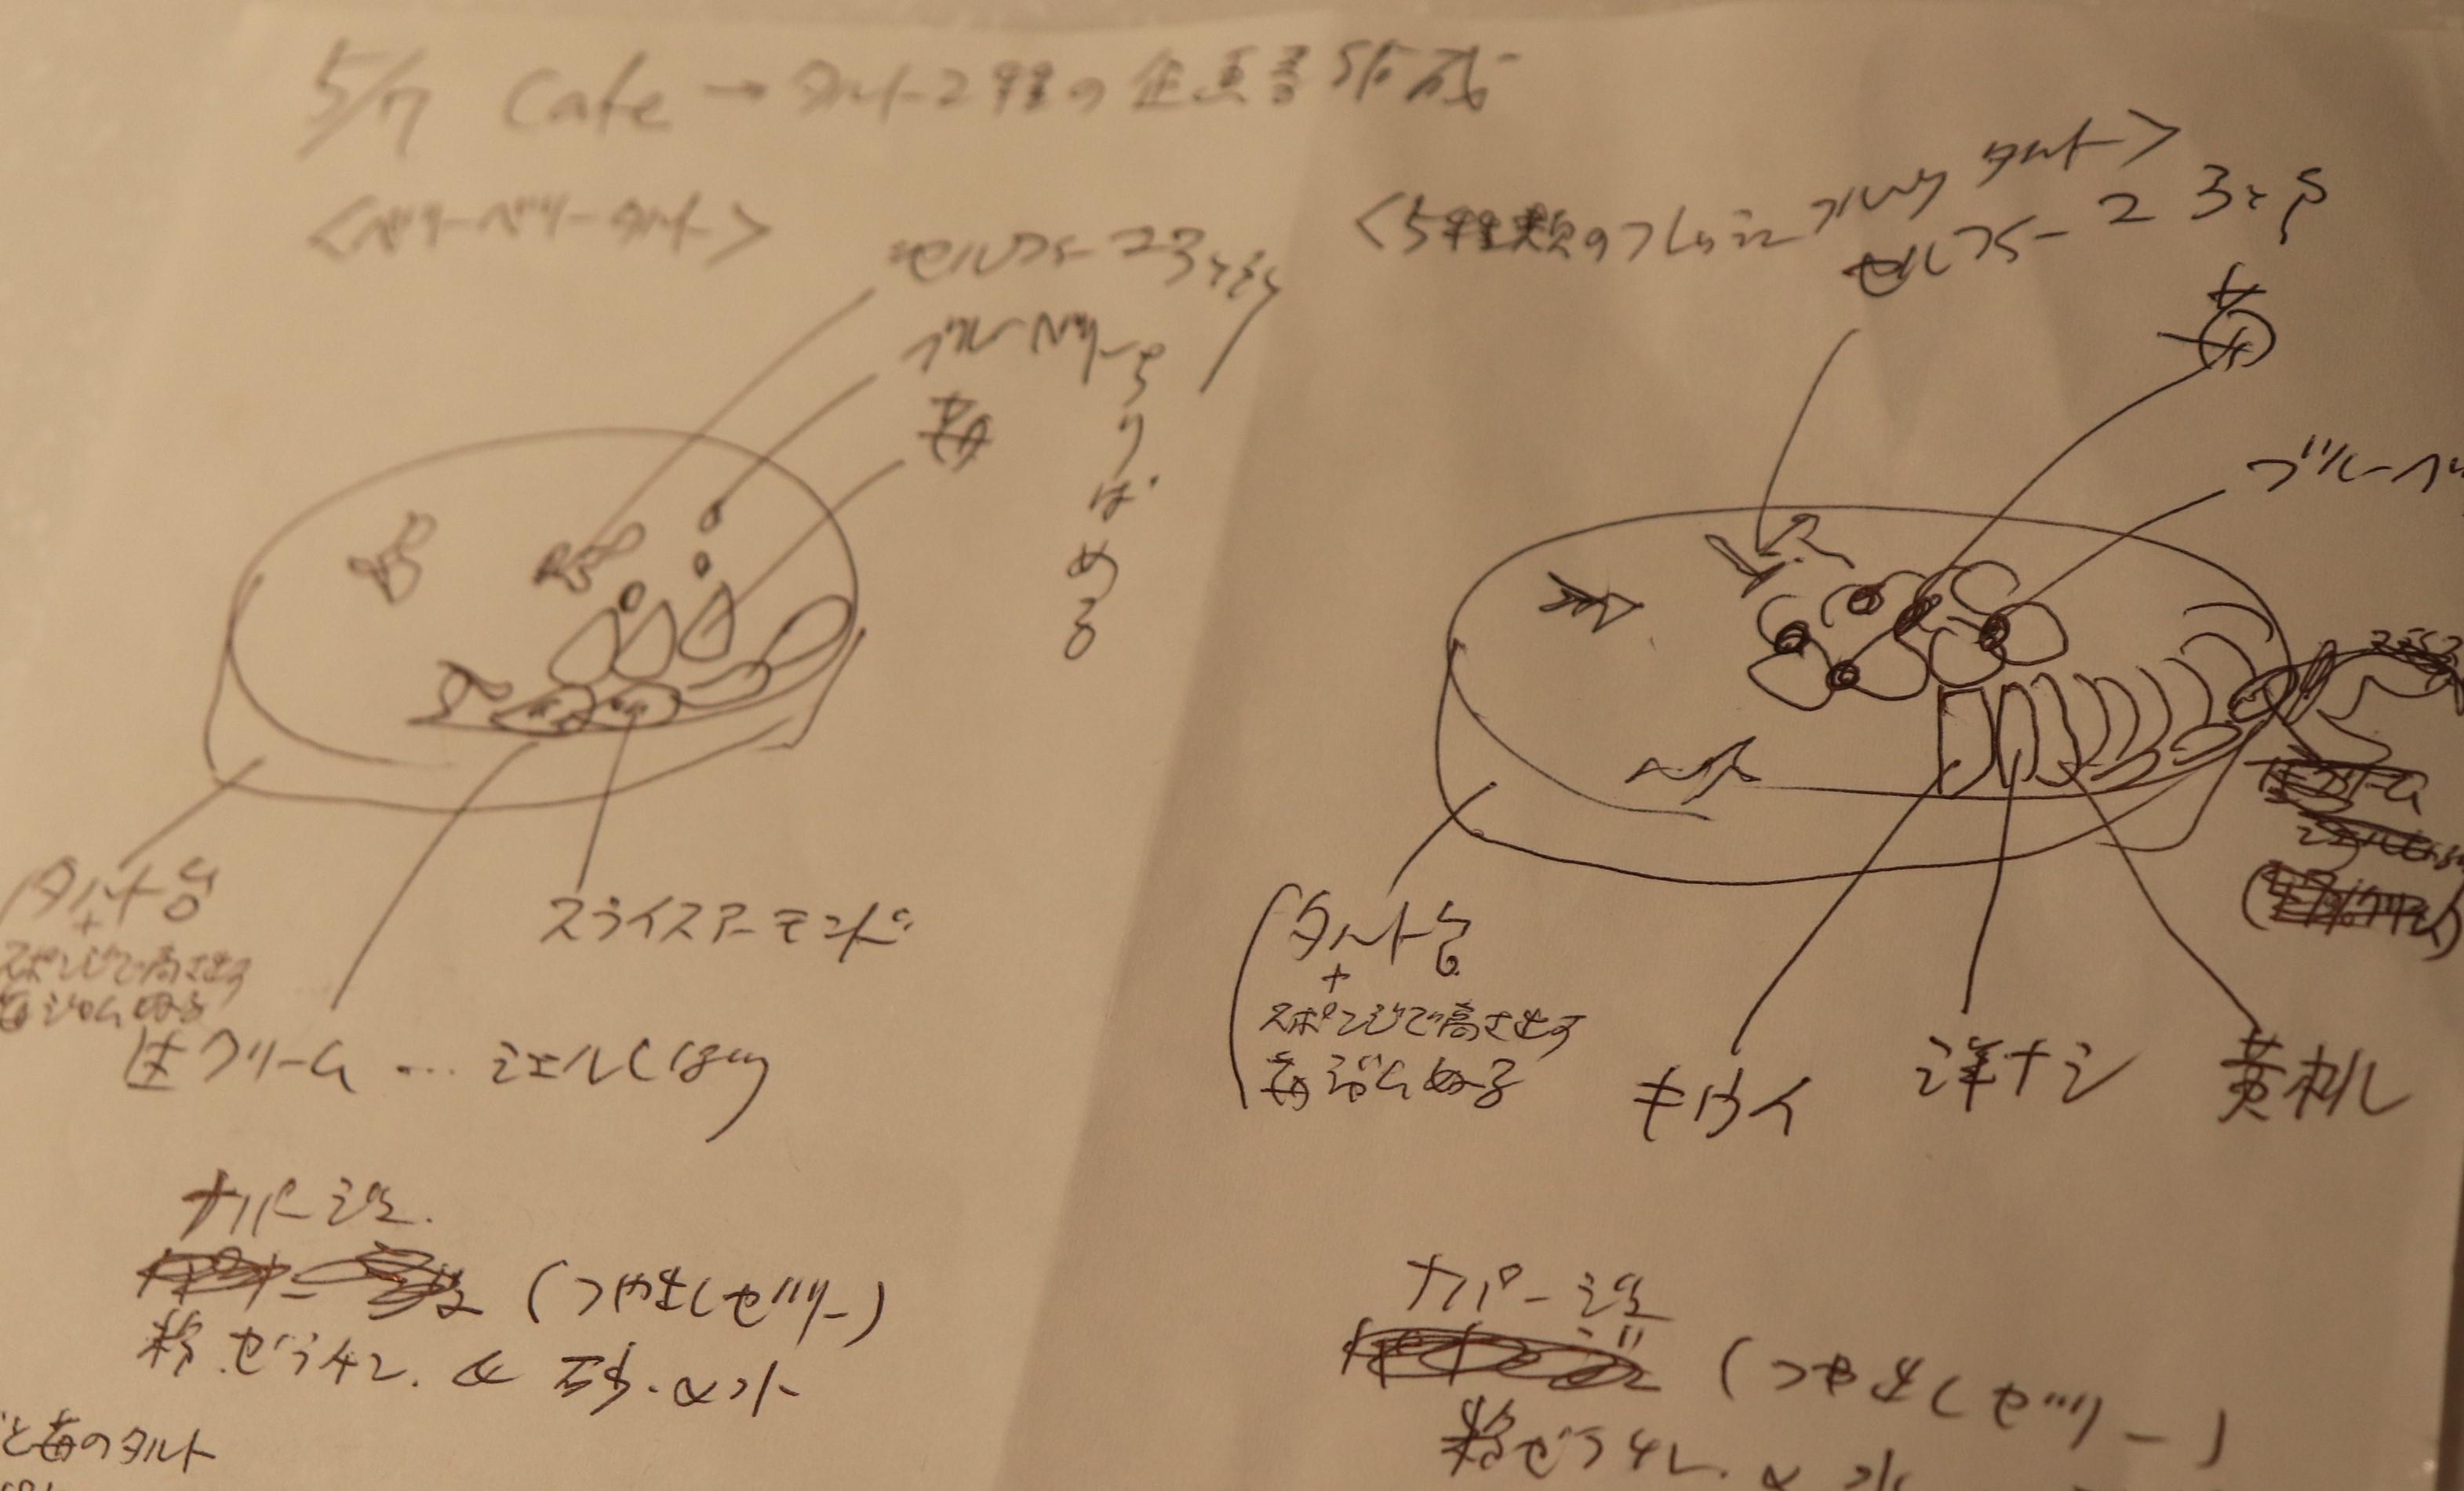 5/7 Cafe → タルト2種の企画書作成
<ベリーベリータルト>
セルフィーユ 3ヶ所
ブルーベリー
ちりばめる
苺
タルト台
+
スポンジで高さ出す
苺ジャムぬる
スライスアーモンド
生クリーム … シェルしぼり
ナパージュ
(つや出しゼリー)
粉ゼラチン & 砂 & 水
と苺のタルト
<5種類のフレッシュフルーツタルト>
セルフィーユ 3ヶ所
苺
ブルーベ
タルト台
+
スポンジで高さ出す
苺ジャムぬる
キウイ
洋ナシ
黄桃
ナパージュ
(つや出しゼリー)
粉ゼラチン & 水